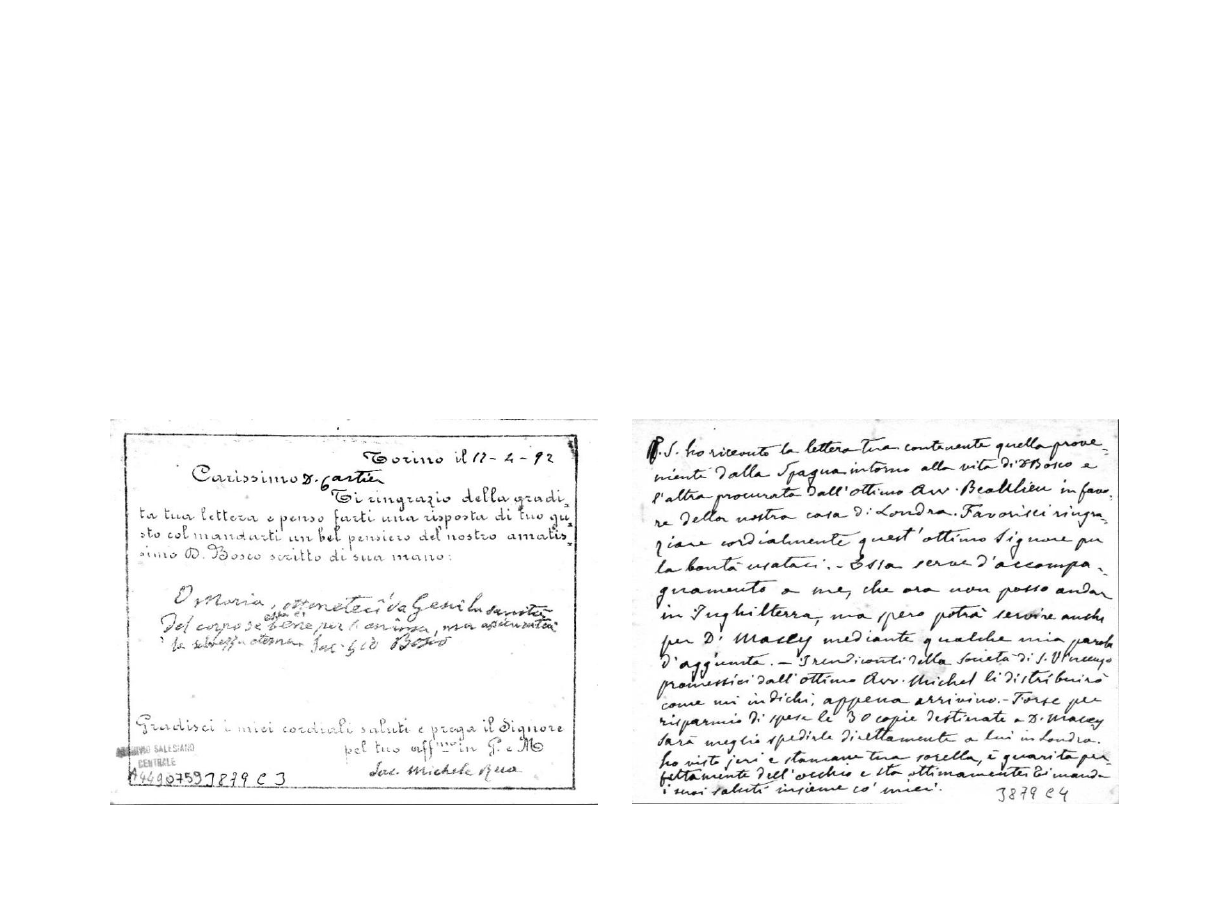 Torino il 12-4-92
Carissimo D. Cartier
Ti ringrazio della gradi-
ta tua lettera e penso farti una risposta di tuo gu-
sto col mandarti un bel pensiero del nostro amatis-
simo D. Bosco scritto di sua mano:
O Maria, otteneteci da Gesù la sanità
del corpo se essa è bene per l'anima, ma assicurateci
la salvezza eterna. Sac. Gio Bosco
Gradisci i miei cordiali saluti e prega il Signore
pel tuo aff.mo in G. e M
Sac. Michele Rua
ARCHIVIO SALESIANO
CENTRALE
3879 C 3
P.S. ho ricevuto la lettera tua contenente quella prove-
niente dalla Spagna intorno alla vita di D Bosco e
l'altra procurata dall'ottimo Avv. in favo-
re della nostra casa di Londra. Favorisci ringra-
ziare cordialmente quest'ottimo Signore per
la bontà usataci. - Essa serve d'accompa-
gnamento a me, che ora non posso andar
in Inghilterra, ma spero potrà servire anche
per D. Macey mediante qualche mia parola
d'aggiunta. - I rendiconti della Società di S. Vincenzo
promessici dall'ottimo Avv. Michel li distribuirò
come mi indichi, appena arrivino. - Forse per
risparmio di spese le 30 copie destinate a D. Macey
sarà meglio spedirle direttamente a lui in Londra.
ho visto jeri e stamane tua sorella, è guarita per-
fettamente dell'occhio e sta ottimamente: ti manda
i suoi saluti insieme co' miei.
3879 C 4